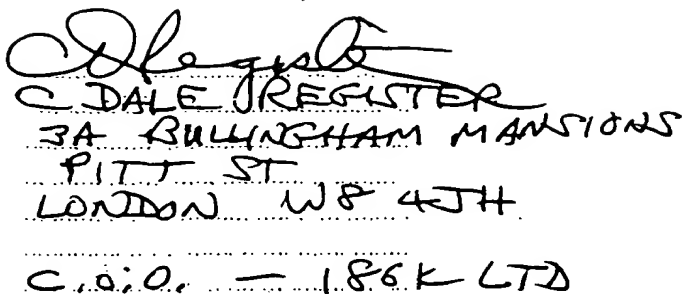 C DALE REGISTER
3A BULLINGHAM MANSIONS
PITT ST
LONDON W8 4JH
C.O.O. — 186K LTD